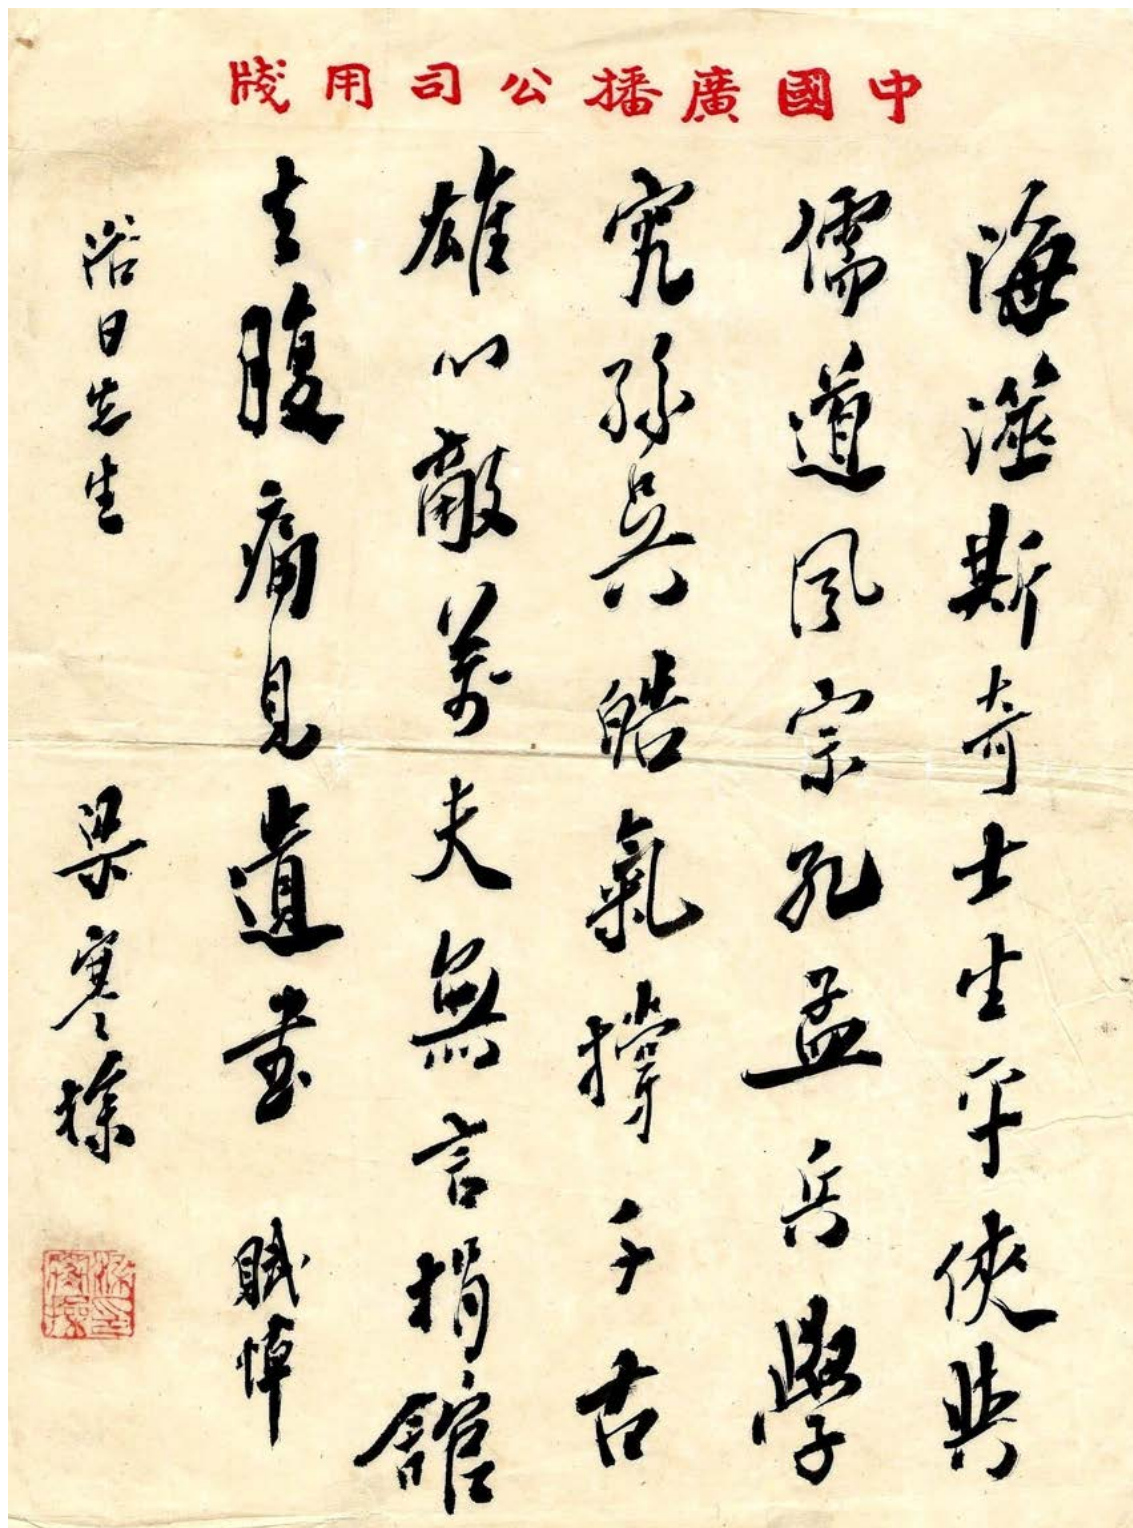 中國廣播公司用牋
海澨斯奇士生平俠與
儒道風宗孔孟兵學
究孫吳皓氣撐千古
雄心敵萬夫無言捐館
去腹痛見遺書 賦悼
浴日先生
梁寒操
梁寒操印